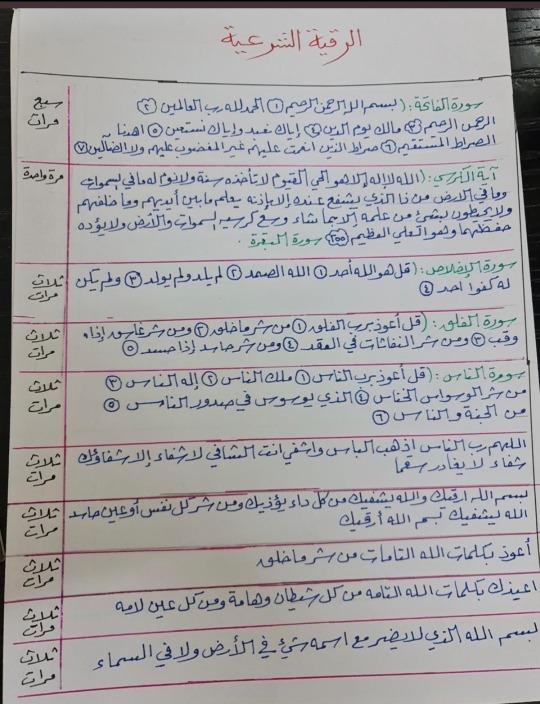 الرقية الشرعية
سورة الفاتحة: (بسم الله الرحمن الرحيم ١ الحمد لله رب العالمين ٢
سبع مرات
الرحمن الرحيم ٣ مالك يوم الدين ٤ إياك نعبد وإياك نستعين ٥ اهدنا
الصراط المستقيم ٦ صراط الذين انعمت عليهم غير المغضوب عليهم ولا الضالين ٧
آية الكرسي: (الله لا إله إلا هو الحي القيوم لا تأخذه سنة ولا نوم له ما في السموات
مرة واحدة
وما في الارض من ذا الذي يشفع عنده إلا بإذنه يعلم ما بين أيديهم وما خلفهم
ولا يحيطون بشيء من علمه إلا بما شاء وسع كرسيه السموات والأرض ولا يؤده
حفظهما وهو العلي العظيم ٢٥٥ سورة البقرة.
سورة الإخلاص: (قل هو الله أحد ١ الله الصمد ٢ لم يلد ولم يولد ٣ ولم يكن
له كفوا احد ٤
ثلاث مرات
سورة الفلق: (قل أعوذ برب الفلق ١ من شر ما خلق ٢ ومن شر غاسق إذا
وقب ٣ ومن شر النفاثات في العقد ٤ ومن شر حاسد إذا حسد ٥
ثلاث مرات
سورة الناس: (قل أعوذ برب الناس ١ ملك الناس ٢ إله الناس ٣
من شر الوسواس الخناس ٤ الذي يوسوس في صدور الناس ٥
من الجنة والناس ٦
ثلاث مرات
اللهم رب الناس اذهب الباس واشفي انت الشافي لا شفاء إلا شفاؤك
شفاء لا يغادر سقما
ثلاث مرات
بسم الله ارقيك والله يشفيك من كل داء يؤذيك ومن شر كل نفس أو عين حاسد
الله يشفيك بسم الله أرقيك
ثلاث مرات
أعوذ بكلمات الله التامات من شر ما خلق
ثلاث مرات
اعيذك بكلمات الله التامه من كل شيطان وهامة ومن كل عين لامه
ثلاث مرات
بسم الله الذي لا يضر مع اسمه شيء في الأرض ولا في السماء
ثلاث مرات